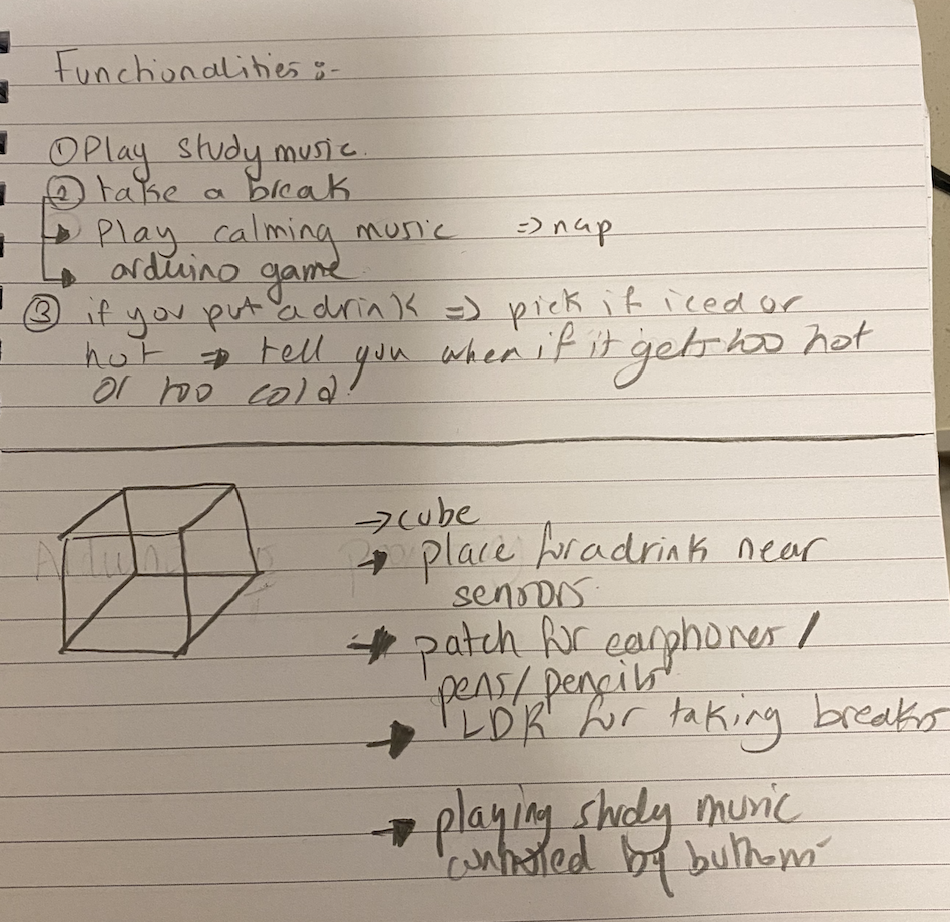 Functionalities :-
① Play study music.
② take a break
Play calming music => nap
arduino game
③ if you put a drink => pick if iced or
hot => tell you when if it gets too hot
or too cold!
→ cube
→ place for a drink near
sensors
→ patch for earphones /
pens / pencils
→ LDR for taking breaks
→ playing study music
controlled by buttons